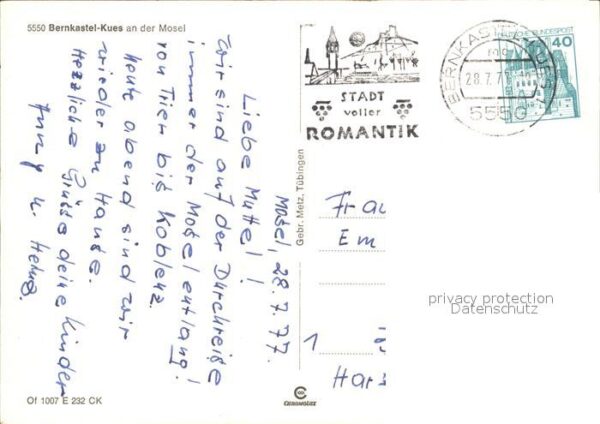 5550 Bernkastel-Kues an der Mosel
Mosel, 28.7.77.
Liebe Mutter!
Wir sind auf der Durchreiße
immer der Mosel entlang!
von Trier bis Koblenz.
Heute abend sind wir
wieder zu Hause.
Herzliche Grüße deine Kinder
Anny u. Heinz.
Of 1007 E 232 CK
Gebr. Metz, Tübingen
CEKAMETZ
STADT
voller
ROMANTIK
BERNKASTEL-KUES 1
mc
28.7.77
5550
DEUTSCHE BUNDESPOST
40
Frau
Em
1
Har
privacy protection
Datenschutz